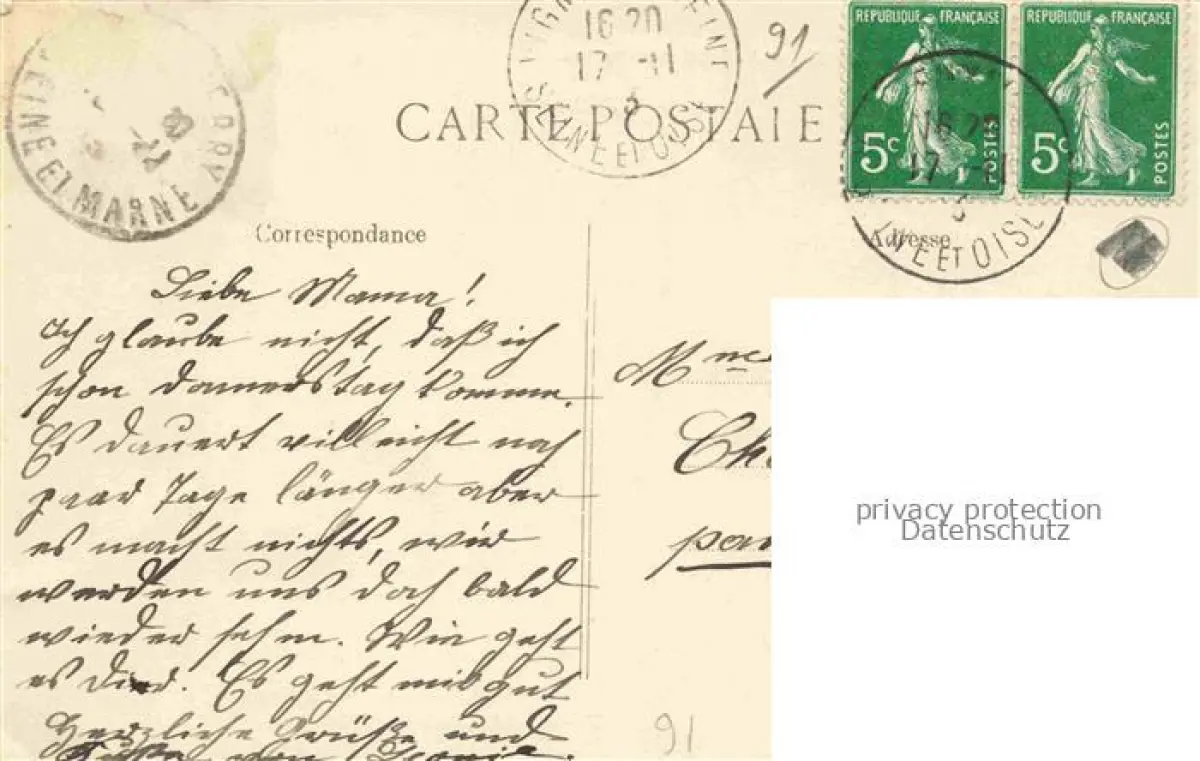 SEINE ET MARNE
16 20
17 -11
SEINE ET OISE
91
REPUBLIQUE FRANÇAISE
5c
POSTES
REPUBLIQUE FRANÇAISE
5c
POSTES
16 20
17 -11
SEINE ET OISE
CARTE POSTALE
Correspondance
Adresse
Liebe Mama!
Ich glaube nicht, daß ich
schon Donnerstag komme.
Es dauert villeicht noch
paar Tage länger aber
es macht nichts, wir
werden uns doch bald
wieder sehen. Wie geht
es Dir. Es geht mir gut
Herzliche Grüße und
Küsse von
Mme
privacy protection
Datenschutz
91